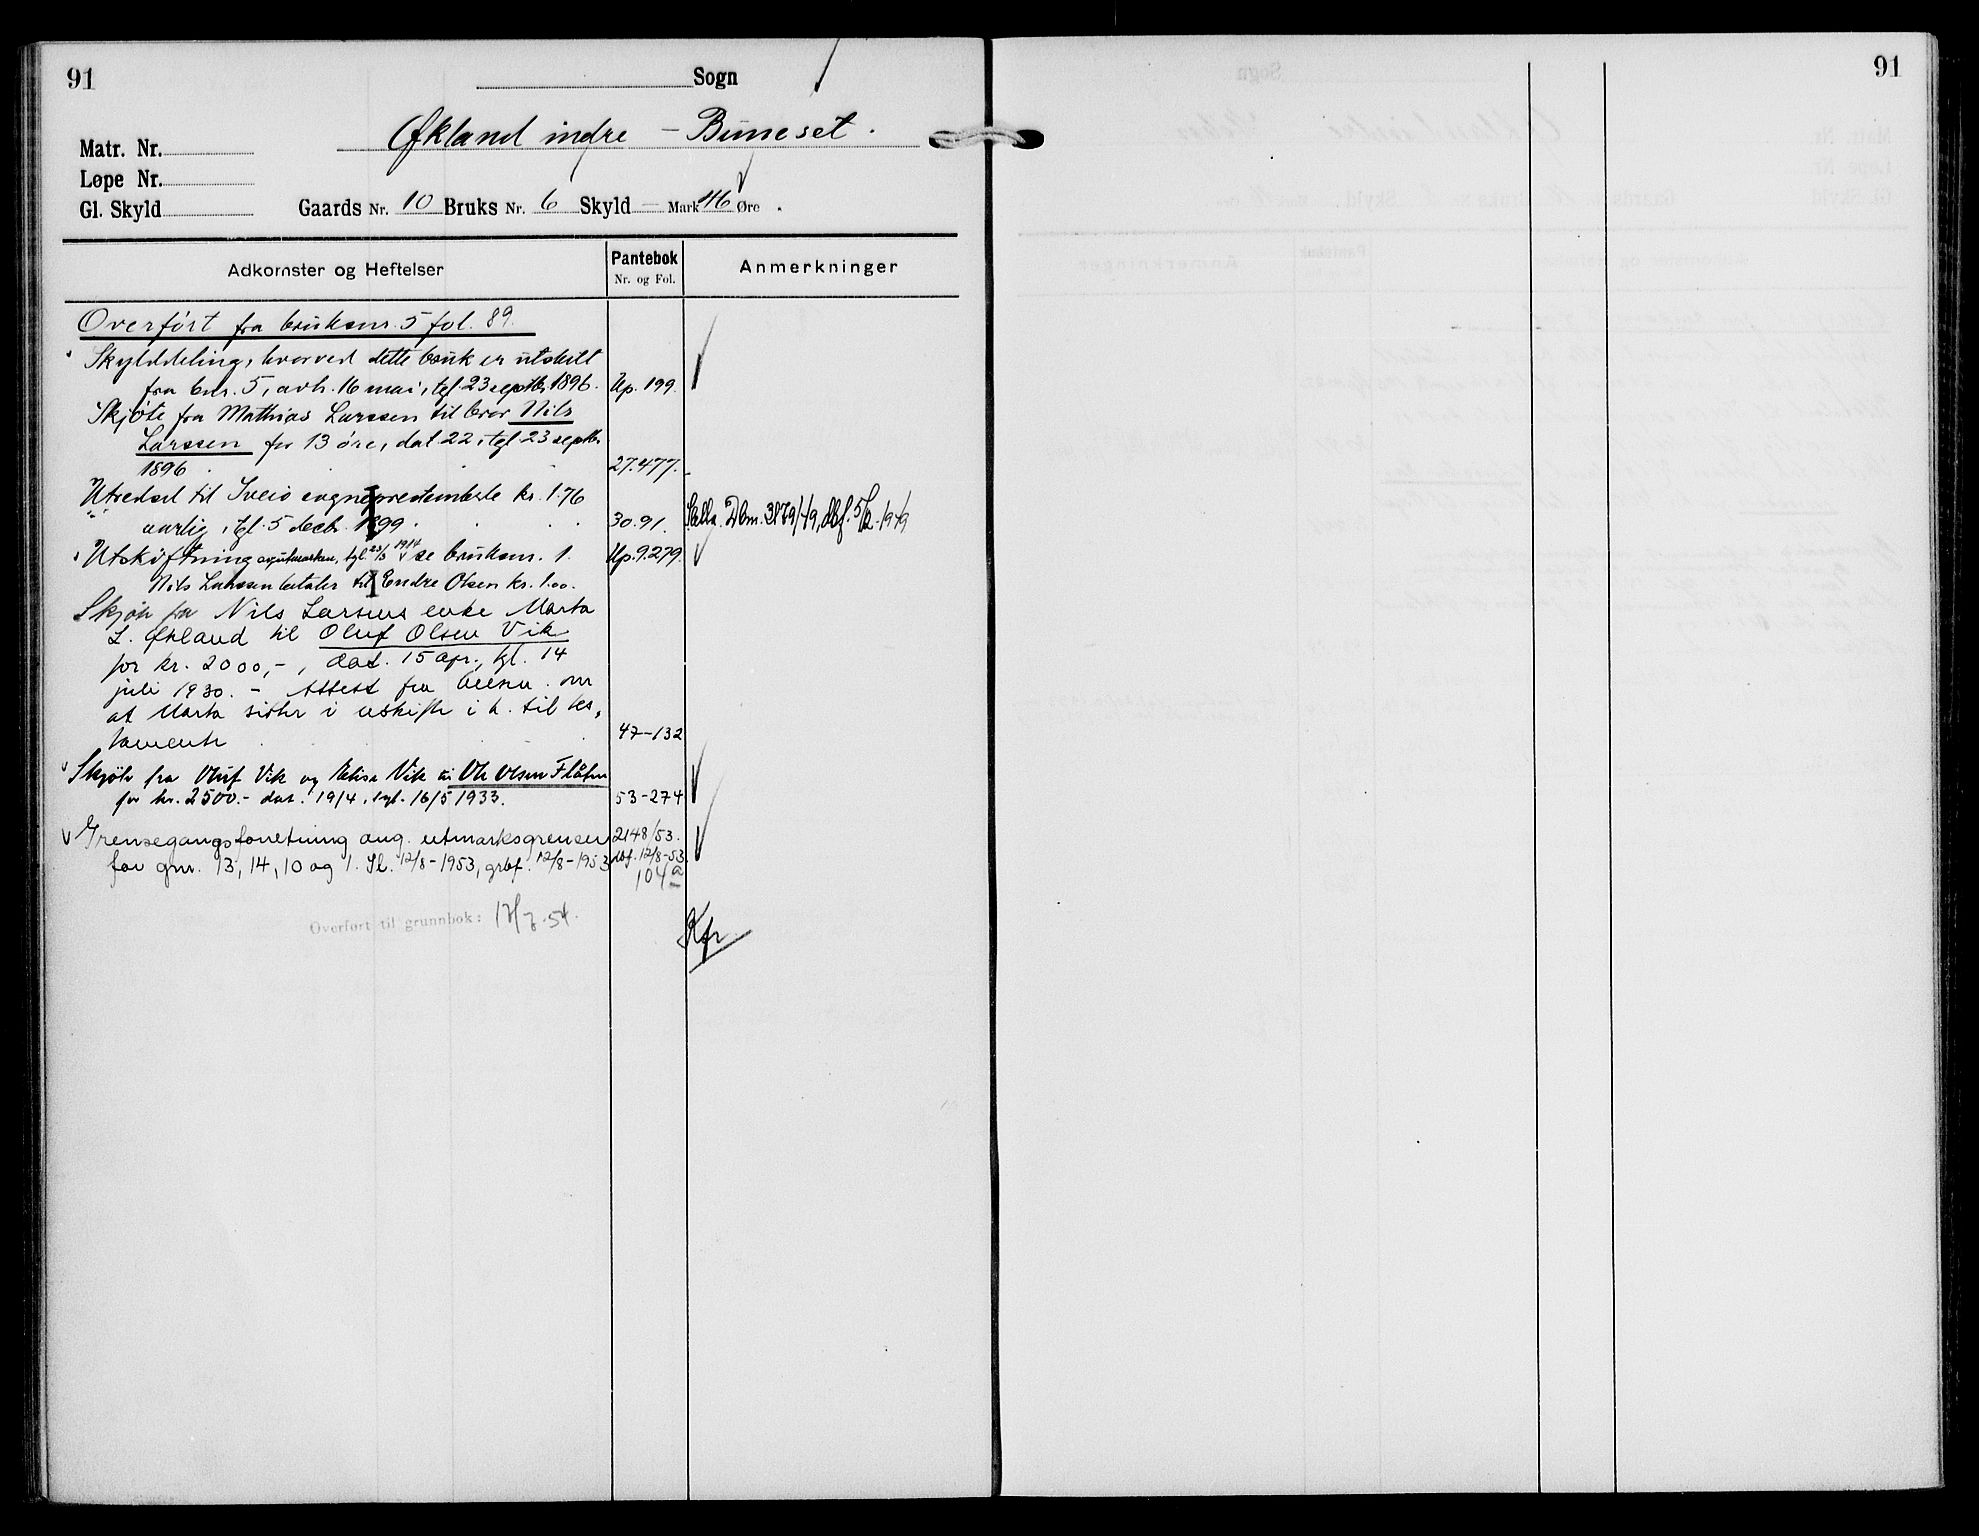 91
Sogn
Økland indre – Buneset.
Matr. Nr.
Løpe Nr.
Gl. Skyld
Gaards Nr. 10 Bruks Nr. 6 Skyld — Mark 46 Øre .
Adkomster og Heftelser
Pantebok
Nr. og Fol.
Anmerkninger
Overført fra bruksnr. 5 fol. 89.
Skylddeling, hvorved dette bruk er utskilt
fra bnr. 5, avh. 16 mai, tgl 23 septbr 1896. Up. 199.
Skjøte fra Mathias Larssen til bror Nils
Larssen for 13 øre, dat 22, tgl 23 septbr
1896 27.477.
Utredsel til Sveio sogneprestembede kr. 1.76
aarlig, tgl. 5 decbr. 1899. 30.91. Dbm. 3879/49, dbf. 5/12-1949
Utskiftning av utmarken, tgl 23/3 1914 se bruksnr. 1. Up. 9.279.
Nils Larssen betaler til Endre Olsen kr. 1.00.
Skjøte fra Nils Larsens enke Marta
L. Økland til Oluf Olsen Vik
for kr. 2000,-, dat. 15 apr., tgl. 14
juli 1930. – Attest fra om
at Marta sitter i uskifte i h. til tes-
tamente 47-132
Skjøte fra Oluf Vik og Vik til Ole Olsen Flåten
for kr. 2500.- dat. 19/4, tgl. 16/5 1933. 53-274
Grensegangsforretning ang. utmarksgrensen 2148/53.
for gnr. 13, 14, 10 og 1. Sl. 12/8-1953, grbf. 12/8-1953 dbf. 12/8-53
104a
Overført til grunnbok: 17/7-54.
Kfr.
91